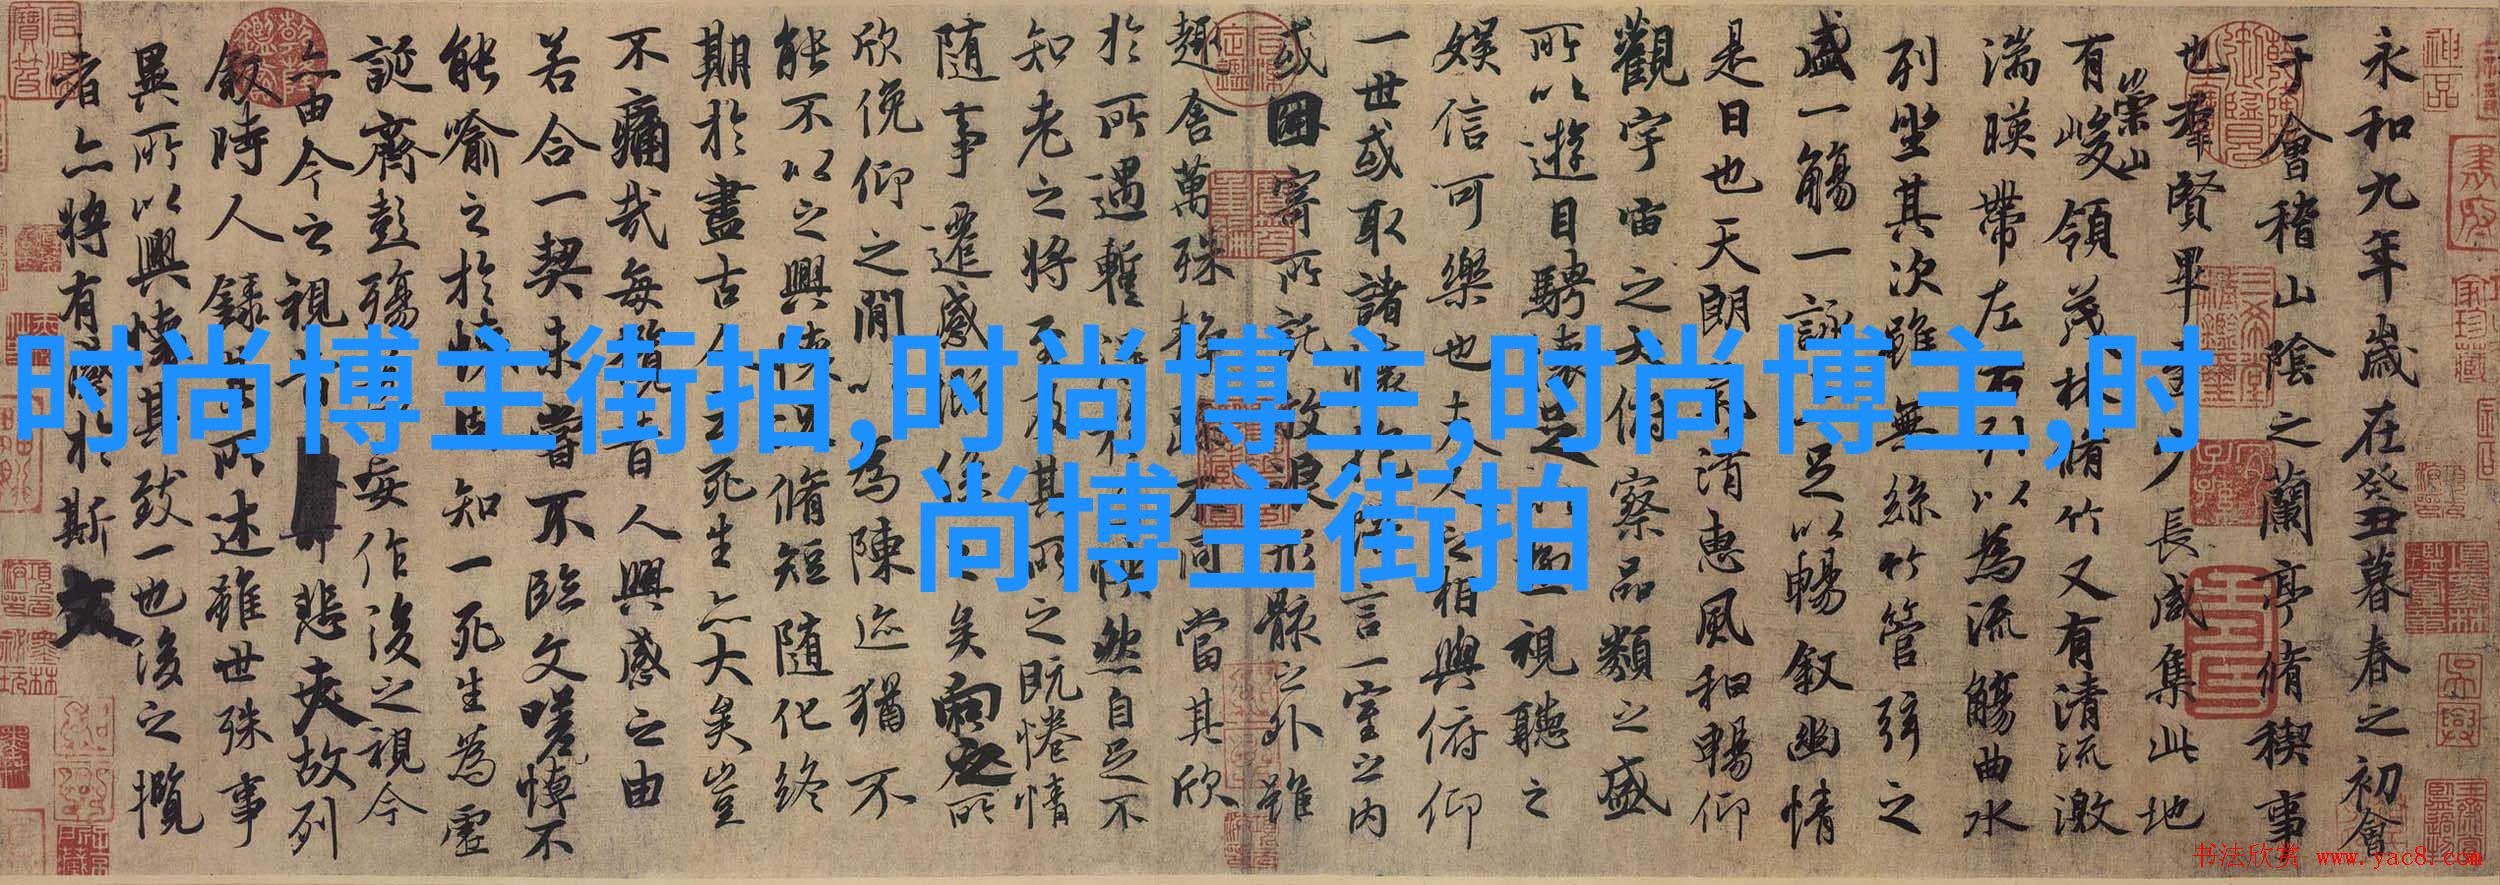 时尚博主街拍,时尚博主,时尚博主,时
尚博主街拍
永和九年歲在癸丑暮春之初會
于會稽山陰之蘭亭脩稧事
也羣賢畢至少長咸集此地
有崇山峻領茂林脩竹又有清流激
湍暎帶左右引以為流觴曲水
列坐其次雖無絲竹管弦之
盛一觴一詠亦足以暢叙幽情
是日也天朗氣清惠風和暢仰
觀宇宙之大俯察品類之盛
所以遊目騁懷足以極視聽之
娛信可樂也夫人之相與俯仰
一世或取諸懷抱悟言一室之內
或因寄所託放浪形骸之外雖
趣舍萬殊靜躁不同當其欣
於所遇暫得於己怏然自足不
知老之將至及其所之既惓情
隨事遷感慨係之矣向之所
欣俛仰之閒以為陳迹猶不
能不以之興懷況脩短隨化終
期於盡古人云死生亦大矣豈
不痛哉每攬昔人興感之由
若合一契未嘗不臨文嗟悼不
能喻之於懷固知一死生為虛
誕齊彭殤為妄作後之視今
亦由今之視昔悲夫故列
敘時人錄其所述雖世殊事
異所以興懷其致一也後之攬
者亦將有感於斯文
书法欣赏 www.yac8.com